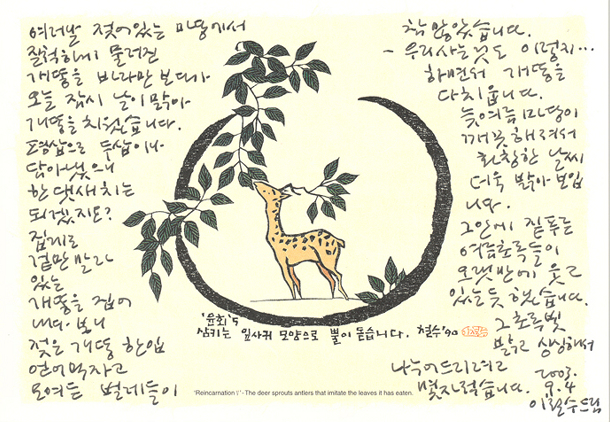 여러날 젖어있는 마당에서
질척하게 물러진
개똥을 바라만 보다가
오늘 잠시 날이 맑아
개똥을 치웠습니다.
담아냈으니
한 댓새치는
되겠지요?
집게로
겉만 말라
있는
개똥을 집어
내다 보니
젖은 개똥 한입
얻어먹자고
모여든 벌레들이
참 많았습니다.
- 우리사는것도 이렇지...
하면서 개똥을
다 치웁니다.
늦여름 마당이
깨끗해져서
화창한 날씨
더욱 밝아 보입
니다.
그안에 짙푸른
여름초록들이
오랫만에 웃고
있는듯 했습니다.
그 초록빛
밝고 싱싱해서
나누어드리려고
몇자 적습니다.
2003.
9. 4
이철수드림
'윤회'5
삼키는 잎사귀 모양으로 뿔이 돋습니다. 철수'90
'Reincarnation V' - The deer sprouts antlers that imitate the leaves it has eaten.